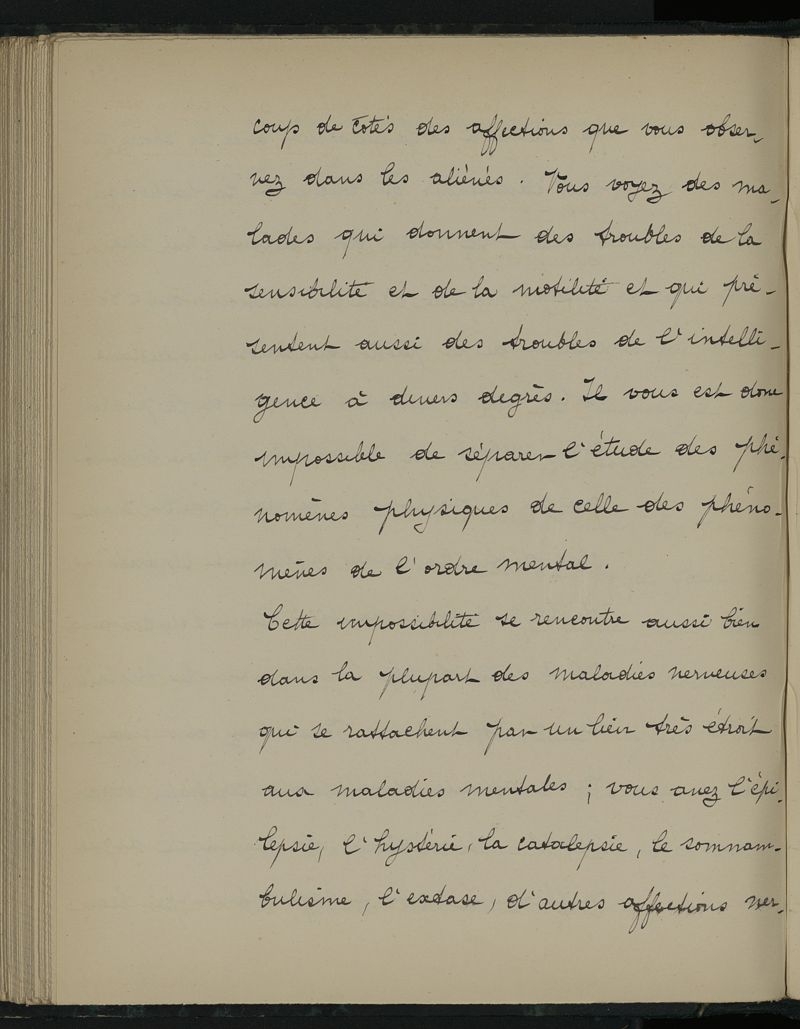 coup de côtés des affections que vous obser-
vez dans les aliénés. Vous voyez des ma-
lades qui donnent des troubles de la
sensibilité et de la motilité et qui pré-
sentent aussi des troubles de l'intelli-
gence à divers degrés. Il vous est donc
impossible de séparer l'étude des phé-
nomènes physiques de celle des phéno-
mènes de l'ordre mental.
Cette impossibilité se rencontre aussi bien
dans la plupart des maladies nerveuses
qui se rattachent par un lien très étroit
aux maladies mentales ; vous avez l'épi-
lepsie, l'hystérie, la catalepsie, le somnam-
bulisme, l'extase, d'autres affections ner-